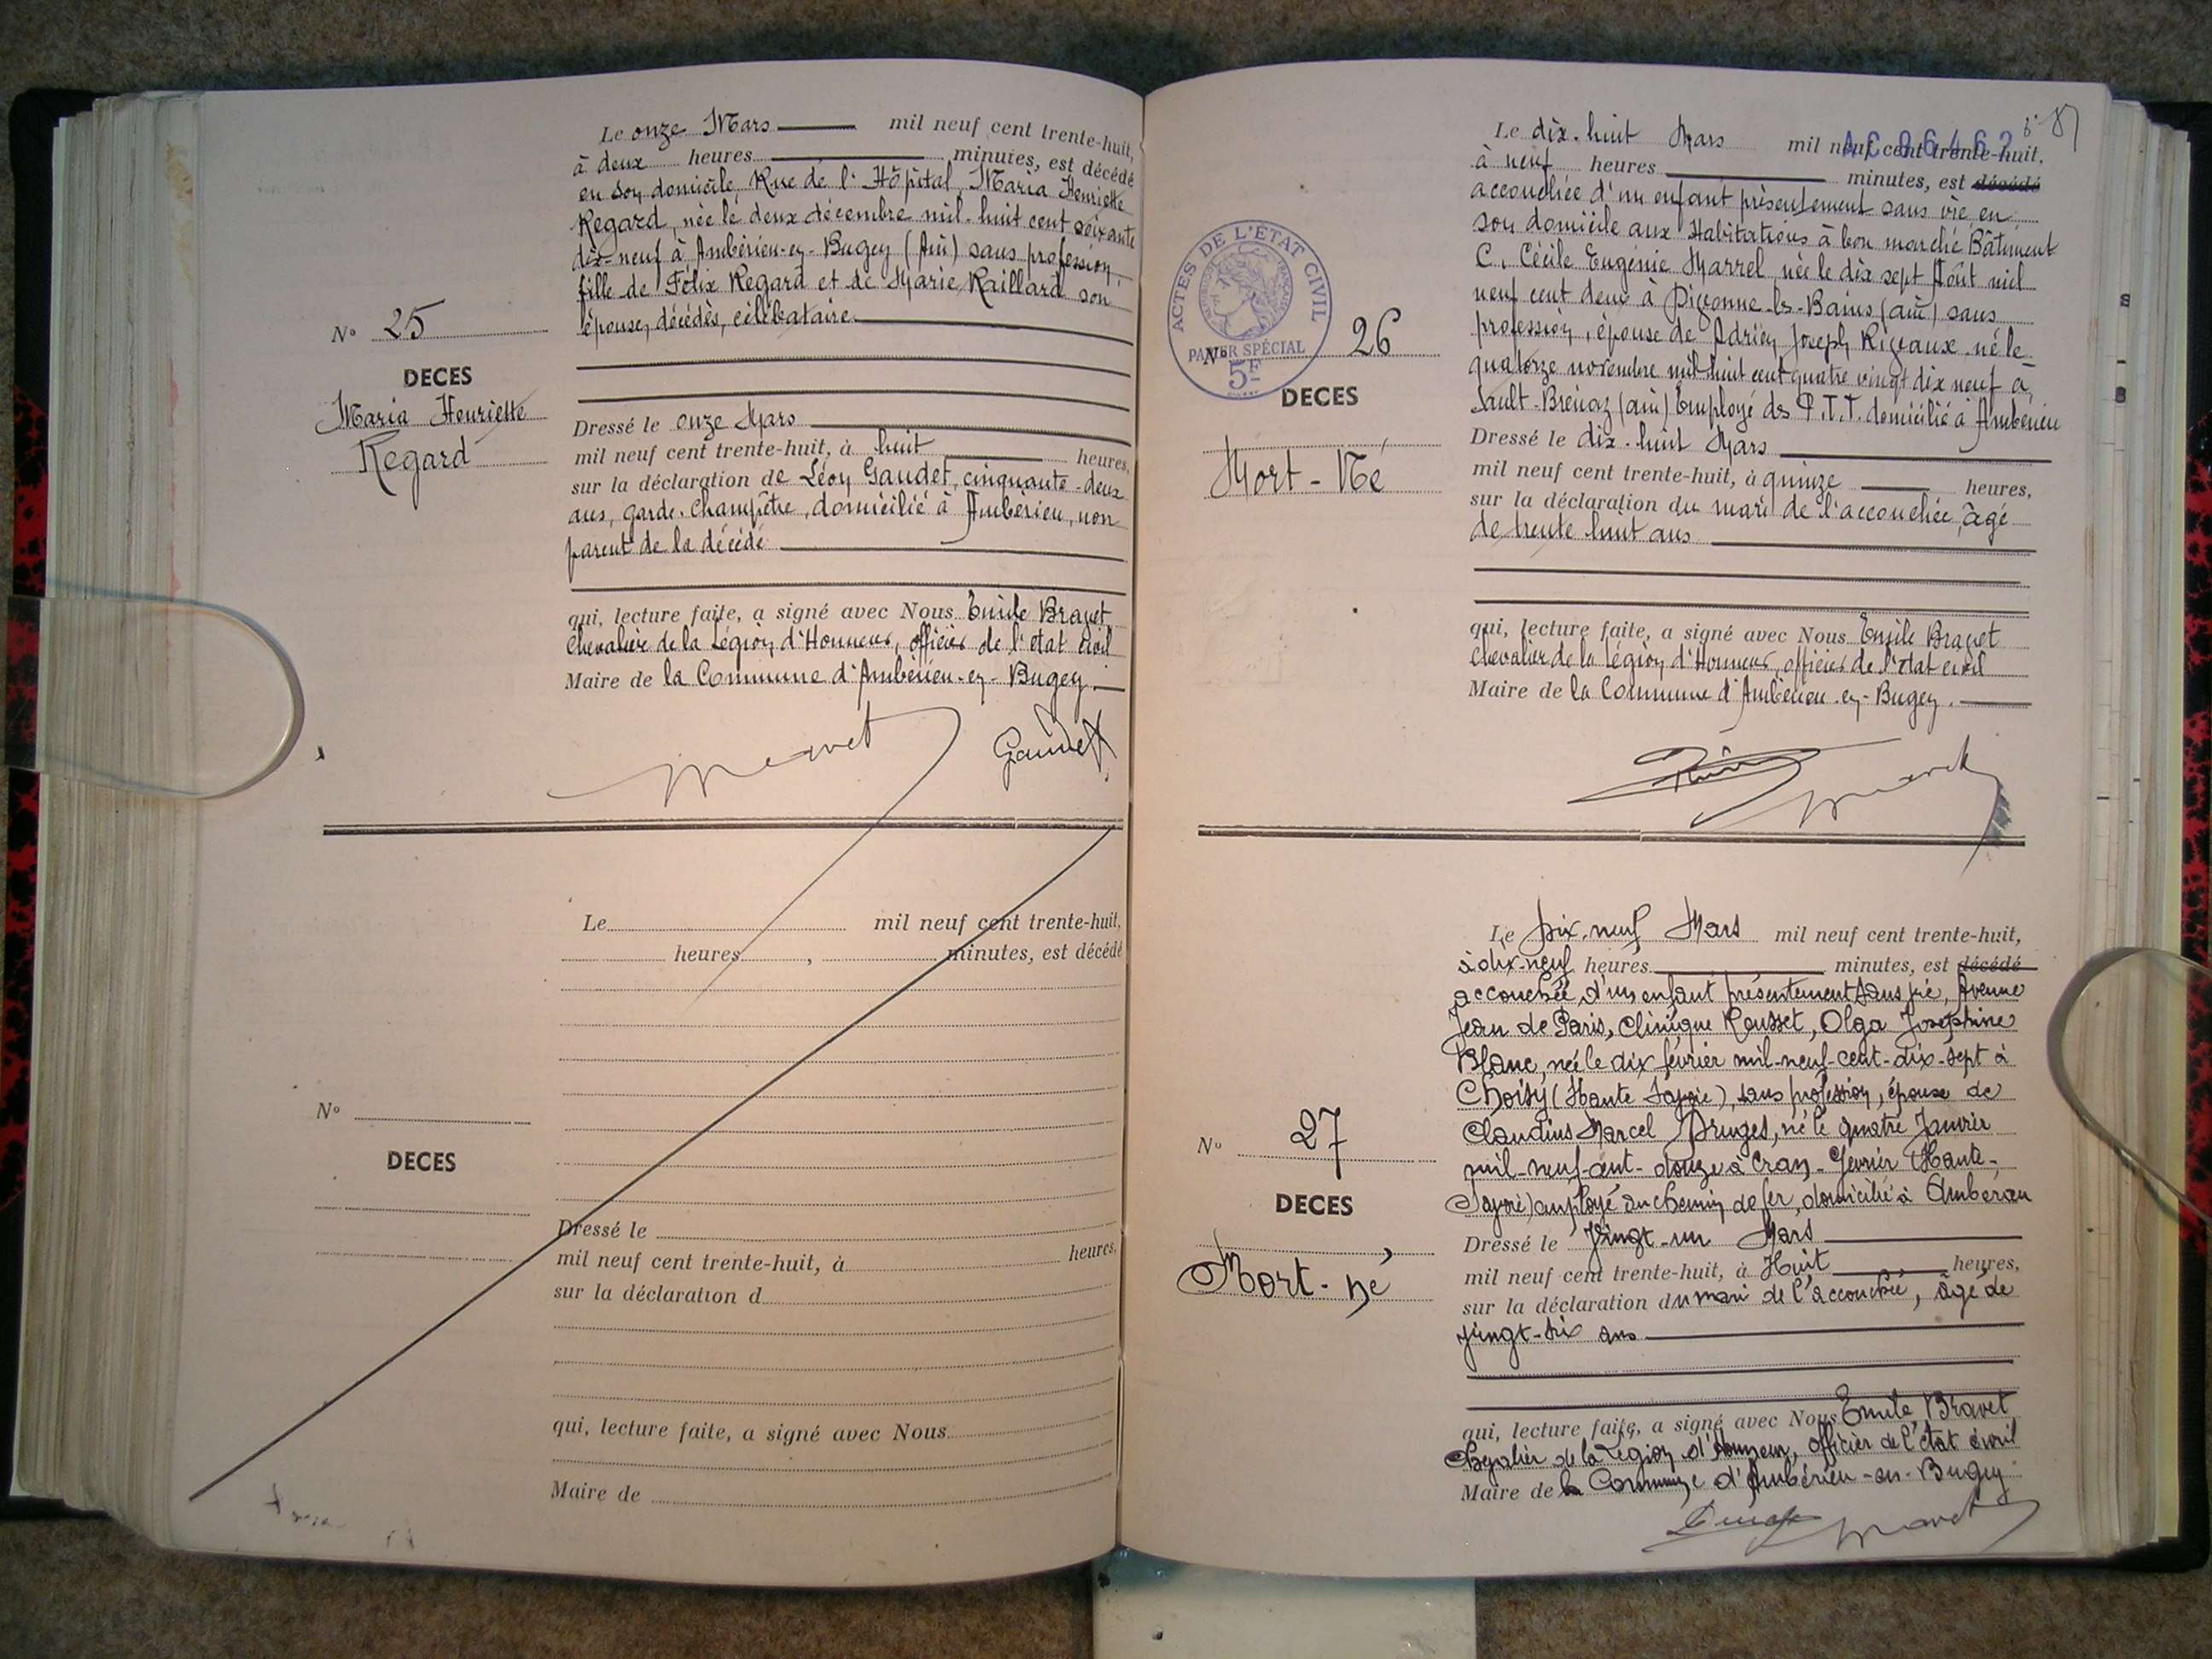 Le onze Mars mil neuf cent trente-huit,
à deux heures minutes, est décédé
en son domicile, Rue de l'Hôpital, Maria Henriette
Regard, née le deux décembre mil-huit cent soixante
dix-neuf à Ambérieu-en-Bugey (Ain) sans profession
fille de Félix Regard et de Marie Raillard son
épouse, décédés, célibataire.
N° 25
DECES
Maria Henriette
Regard
Dressé le onze Mars
mil neuf cent trente-huit, à huit heures,
sur la déclaration de Léon Gaudet, cinquante-deux
ans, garde-Champêtre, domicilié à Ambérieu, non
parent de la décédé
qui, lecture faite, a signé avec Nous Emile Bravet
Chevalier de la Légion d'Honneur, officier de l'état civil
Maire de la Commune d'Ambérieu-en-Bugey.
Bravet Gaudet
Le mil neuf cent trente-huit,
heures , minutes, est décédé
N°
DECES
Dressé le
mil neuf cent trente-huit, à heures,
sur la déclaration d
qui, lecture faite, a signé avec Nous
Maire de
87
Le dix-huit Mars mil neuf cent trente-huit,
à neuf heures minutes, est décédé
accouchée d'un enfant présentement sans vie en
son domicile aux Habitations à bon marché Bâtiment
C, Cécile Eugénie Marrel née le dix sept Août mil
neuf cent deux à Divonne-les-Bains (ain) sans
profession, épouse de Adrien Joseph Rigeaux né le
quatorze novembre mil huit cent quatre vingt dix neuf à
Sault-Brénaz (ain) Employé des P.T.T. domicilié à Ambérieu
ACTES DE L'ETAT CIVIL
PAPIER SPÉCIAL
5F
N° 26
DECES
Mort-Né
Dressé le dix-huit Mars
mil neuf cent trente-huit, à quinze heures,
sur la déclaration du mari de l'accouchée, âgé
de trente huit ans
qui, lecture faite, a signé avec Nous Emile Bravet
Chevalier de la Légion d'Honneur, officier de l'état civil
Maire de la Commune d'Ambérieu-en-Bugey.
Bravet
Le Dix-neuf Mars mil neuf cent trente-huit,
à dix-neuf heures minutes, est décédé
accouchée d'un enfant présentement sans vie, Avenue
Jean de Paris, Clinique Rousset, Olga Joséphine
Blanc, née le dix février mil-neuf-cent-dix-sept à
Choisy (Haute Savoie), sans profession, épouse de
Claudius Marcel Druges, né le quatre Janvier
mil-neuf-cent-douze à Cran-Gevrier (Haute-
Savoie) employé au chemin de fer, domicilié à Ambérieu
N° 27
DECES
Mort-né
Dressé le Vingt-un Mars
mil neuf cent trente-huit, à Huit heures,
sur la déclaration du mari de l'accouchée, âgé de
vingt-six ans
qui, lecture faite, a signé avec Nous Emile Bravet
Chevalier de la Légion d'Honneur, officier de l'état civil
Maire de la Commune d'Ambérieu-en-Bugey
Bravet